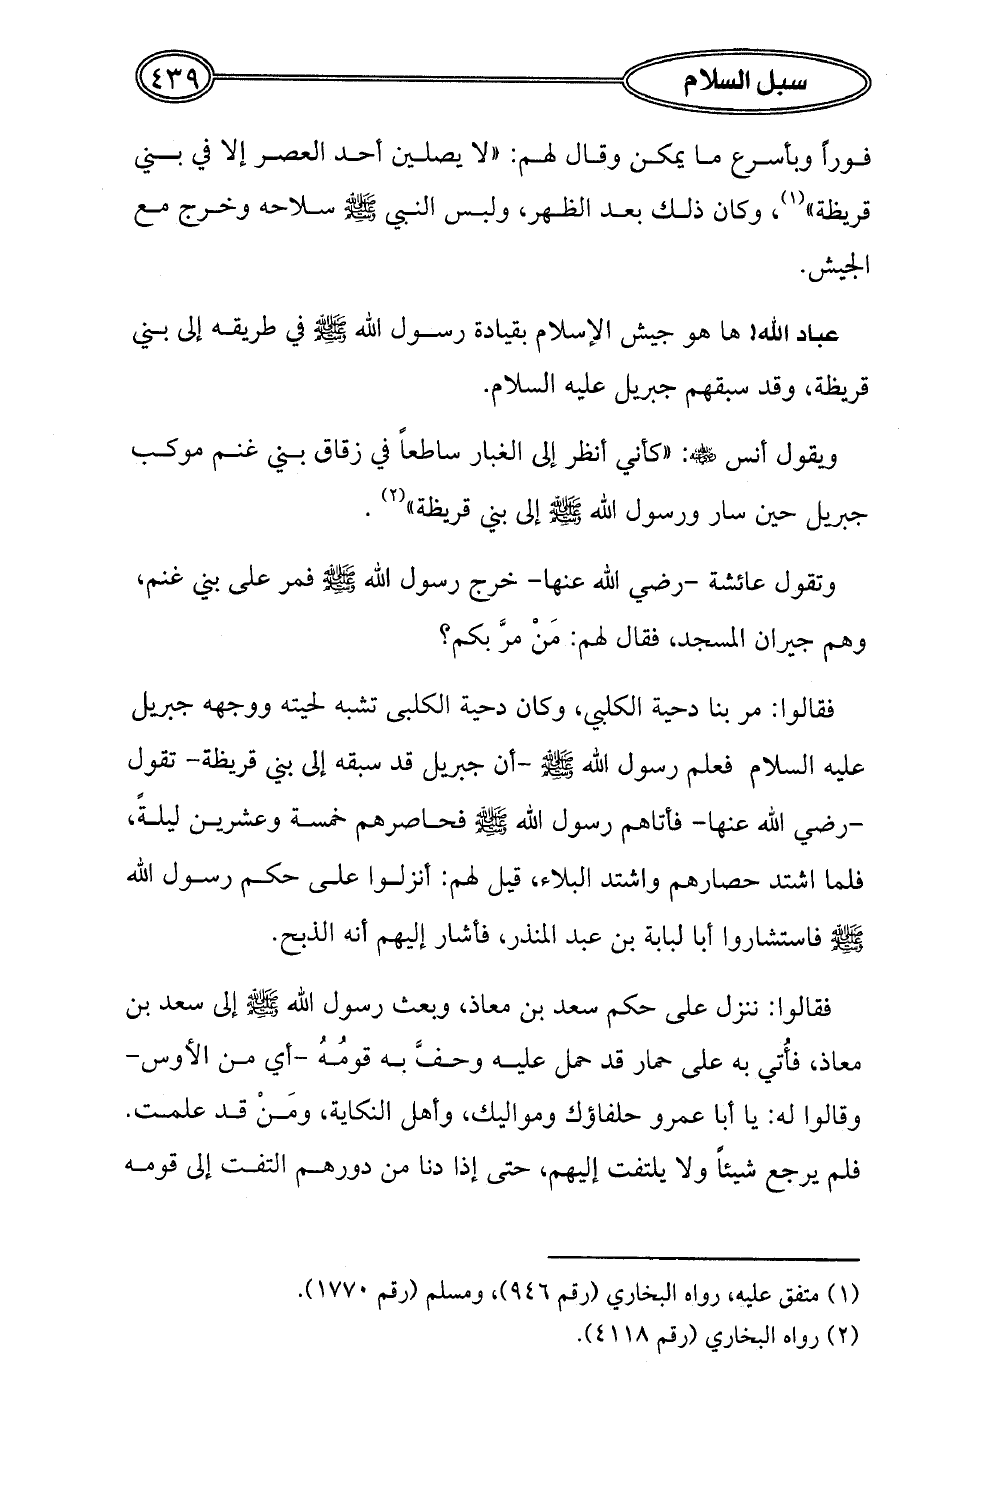 سبل السلام
٤٣٩
فوراً وبأسرع ما يمكن وقال لهم: «لا يصلين أحد العصر إلا في بني
قريظة»(١)، وكان ذلك بعد الظهر، ولبس النبي ﷺ سلاحه وخرج مع
الجيش.
عباد الله! ها هو جيش الإسلام بقيادة رسول الله ﷺ في طريقه إلى بني
قريظة، وقد سبقهم جبريل عليه السلام.
ويقول أنس رضي الله عنه: «كأني أنظر إلى الغبار ساطعاً في زقاق بني غنم موكب
جبريل حين سار ورسول الله ﷺ إلى بني قريظة»(٢) .
وتقول عائشة -رضي الله عنها- خرج رسول الله ﷺ فمر على بني غنم،
وهم جيران المسجد، فقال لهم: مَنْ مرَّ بكم؟
فقالوا: مر بنا دحية الكلبي، وكان دحية الكلبى تشبه لحيته ووجهه جبريل
عليه السلام فعلم رسول الله ﷺ -أن جبريل قد سبقه إلى بني قريظة- تقول
-رضي الله عنها- فأتاهم رسول الله ﷺ فحاصرهم خمسة وعشرين ليلةً،
فلما اشتد حصارهم واشتد البلاء، قيل لهم: أنزلوا على حكم رسول الله
ﷺ فاستشاروا أبا لبابة بن عبد المنذر، فأشار إليهم أنه الذبح.
فقالوا: ننزل على حكم سعد بن معاذ، وبعث رسول الله ﷺ إلى سعد بن
معاذ، فأُتي به على حمار قد حمل عليه وحفَّ به قومُهُ -أي من الأوس-
وقالوا له: يا أبا عمرو حلفاؤك ومواليك، وأهل النكاية، ومَنْ قد علمت.
فلم يرجع شيئاً ولا يلتفت إليهم، حتى إذا دنا من دورهم التفت إلى قومه
(١) متفق عليه، رواه البخاري (رقم ٩٤٦)، ومسلم (رقم ١٧٧٠).
(٢) رواه البخاري (رقم ٤١١٨).